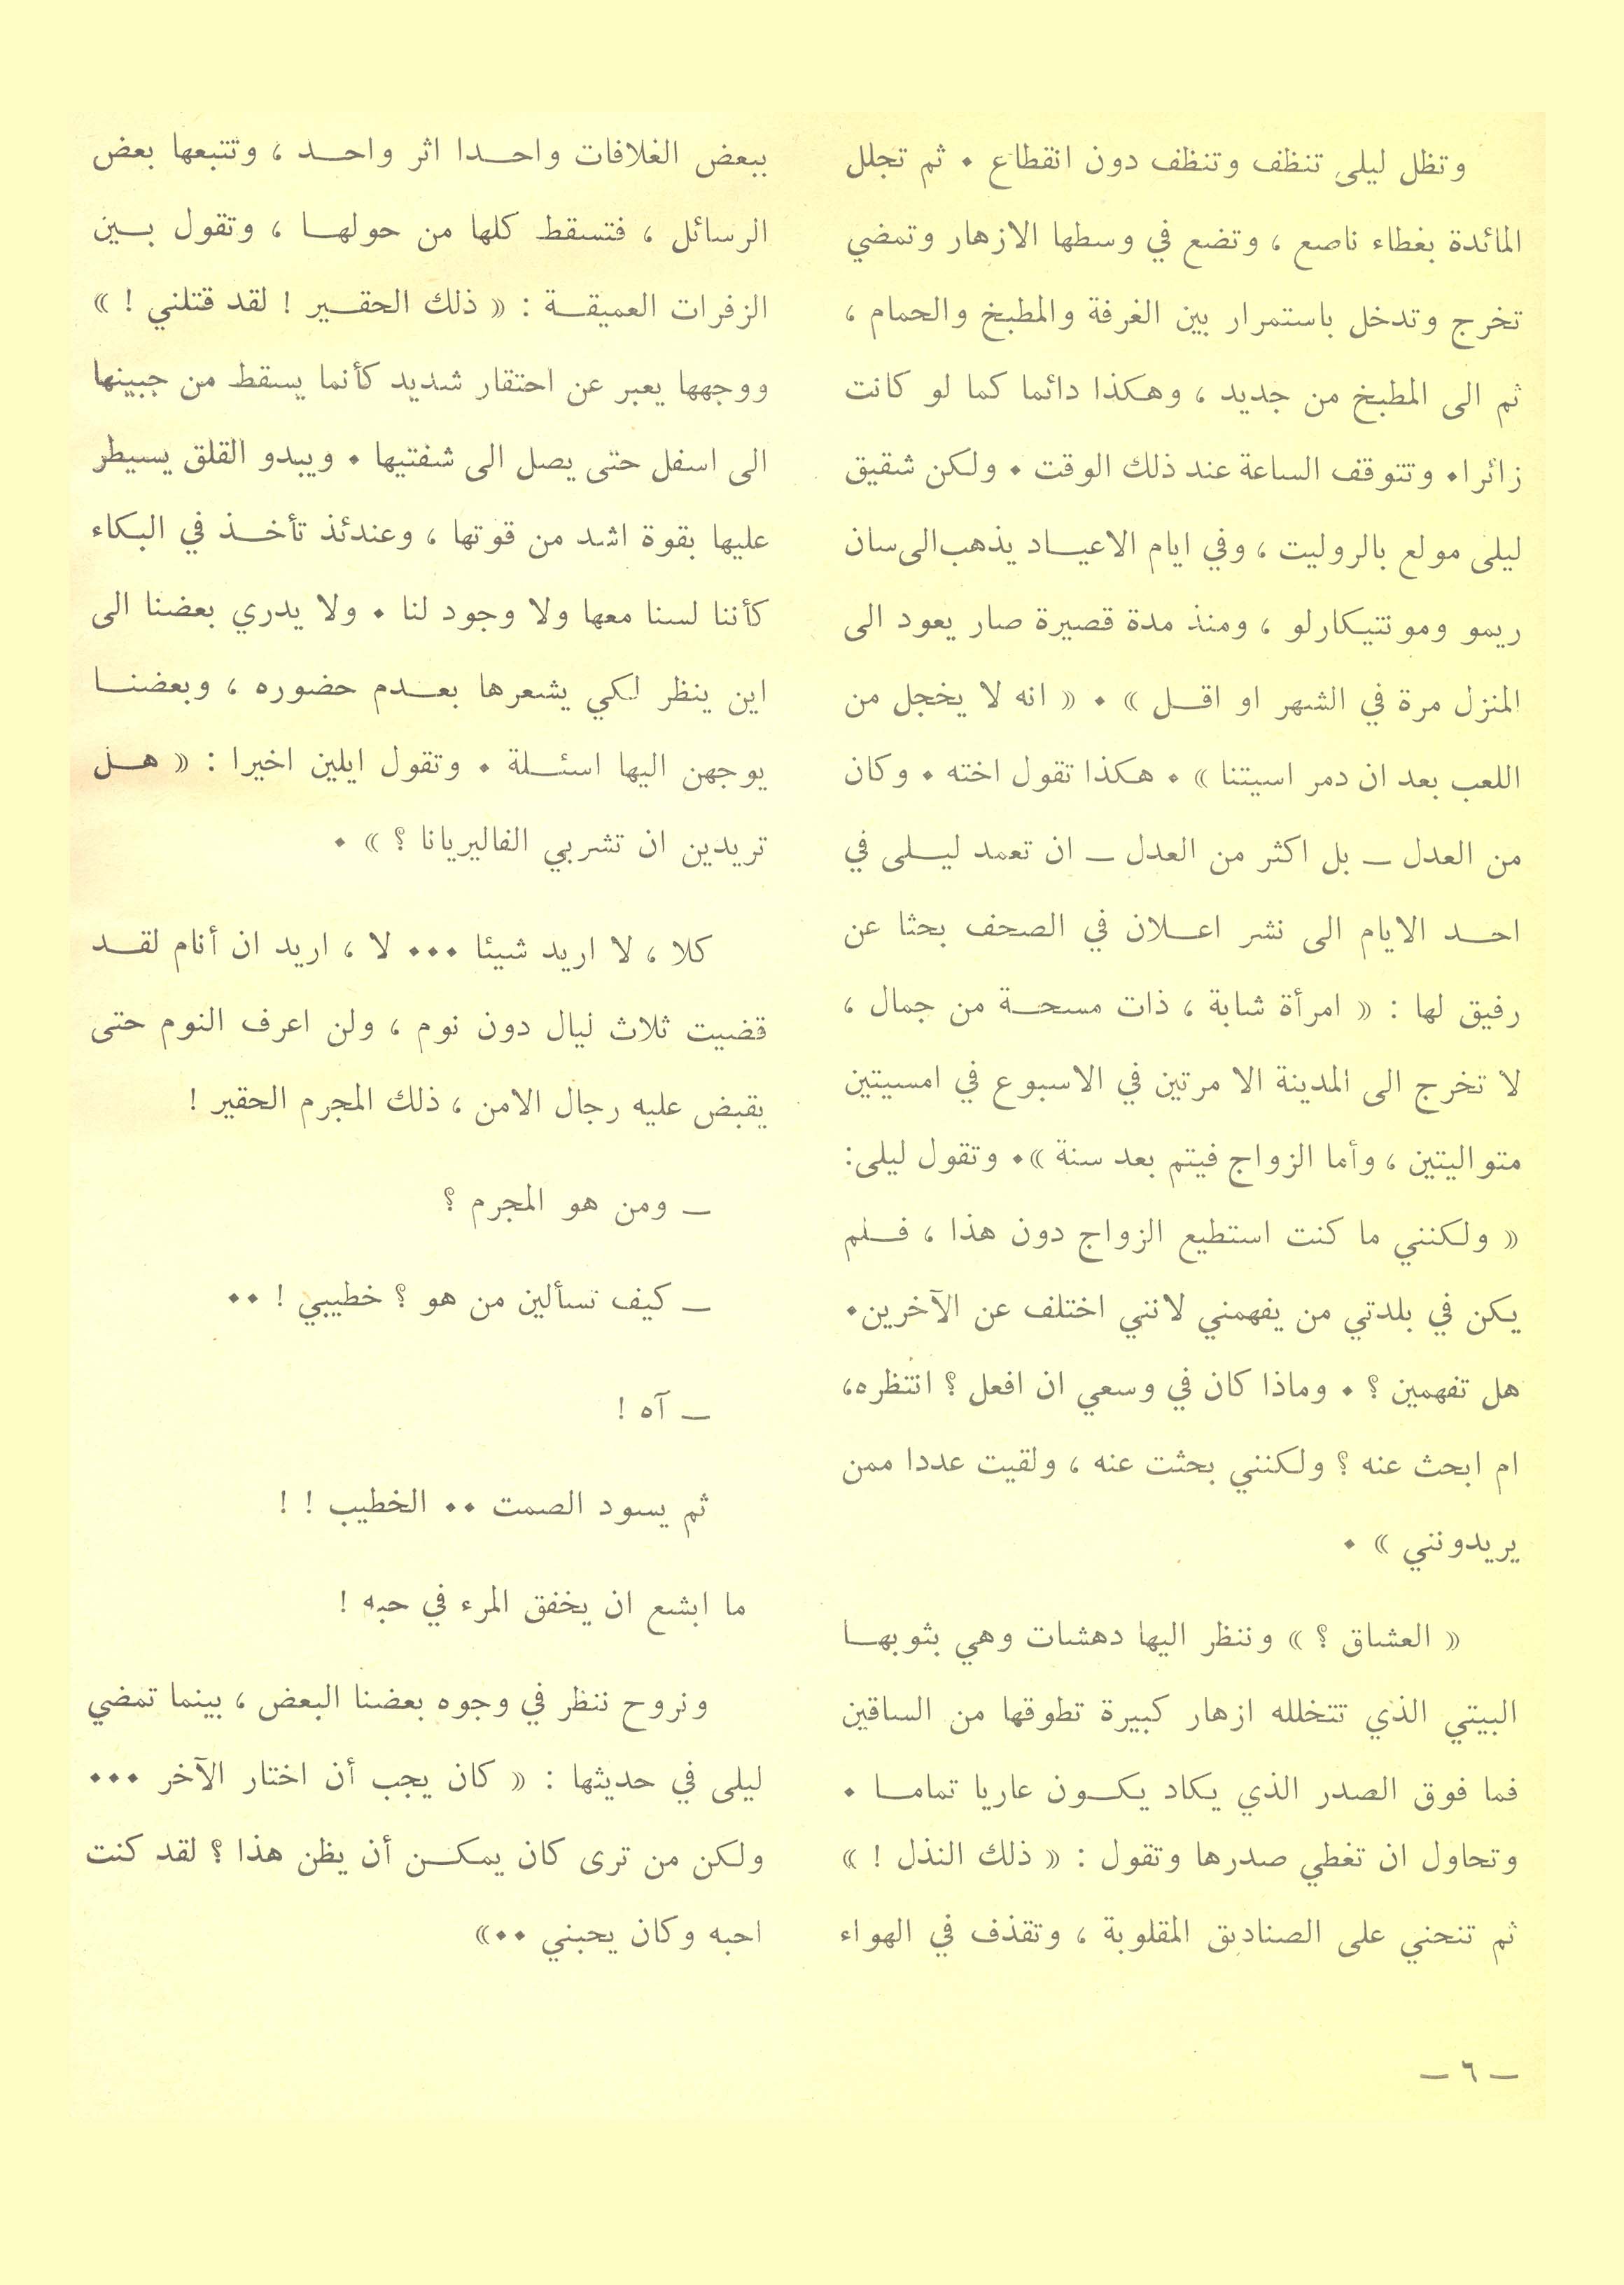 وتظل ليلى تنظف وتنظف دون انقطاع ٠ ثم تجلل
المائدة بغطاء ناصع ، وتضع في وسطها الازهار وتمضي
تخرج وتدخل باستمرار بين الغرفة والمطبخ والحمام ،
ثم الى المطبخ من جديد ، وهكذا دائما كما لو كانت
زائرا٠ وتتوقف الساعة عند ذلك الوقت ٠ ولكن شقيق
ليلى مولع بالروليت ، وفي ايام الاعياد يذهب الى سان
ريمو ومونتيكارلو ، ومنذ مدة قصيرة صار يعود الى
المنزل مرة في الشهر او اقل » ٠ « انه لا يخجل من
اللعب بعد ان دمر اسيتنا » ٠ هكذا تقول اخته ٠ وكان
من العدل — بل اكثر من العدل — ان تعمد ليلى في
احد الايام الى نشر اعلان في الصحف بحثا عن
رفيق لها : « امرأة شابة ، ذات مسحة من جمال ،
لا تخرج الى المدينة الا مرتين في الاسبوع في امسيتين
متواليتين ، وأما الزواج فيتم بعد سنة »٠ وتقول ليلى:
« ولكنني ما كنت استطيع الزواج دون هذا ، فلم
يكن في بلدتي من يفهمني لانني اختلف عن الآخرين٠
هل تفهمين ؟ ٠ وماذا كان في وسعي ان افعل ؟ انتظره،
ام ابحث عنه ؟ ولكنني بحثت عنه ، ولقيت عددا ممن
يريدونني » ٠
« العشاق ؟ » وننظر اليها دهشات وهي بثوبها
البيتي الذي تتخلله ازهار كبيرة تطوقها من الساقين
فما فوق الصدر الذي يكاد يكون عاريا تماما ٠
وتحاول ان تغطي صدرها وتقول : « ذلك النذل ! »
ثم تنحني على الصناديق المقلوبة ، وتقذف في الهواء
ببعض الغلافات واحدا اثر واحد ، وتتبعها بعض
الرسائل ، فتسقط كلها من حولها ، وتقول بين
الزفرات العميقة : « ذلك الحقير ! لقد قتلني ! »
ووجهها يعبر عن احتقار شديد كأنما يسقط من جبينها
الى اسفل حتى يصل الى شفتيها ٠ ويبدو القلق يسيطر
عليها بقوة اشد من قوتها ، وعندئذ تأخذ في البكاء
كأننا لسنا معها ولا وجود لنا ٠ ولا يدري بعضنا الى
اين ينظر لكي يشعرها بعدم حضوره ، وبعضنا
يوجهن اليها اسئلة ٠ وتقول ايلين اخيرا : « هل
تريدين ان تشربي الفاليريانا ؟ » ٠
كلا ، لا اريد شيئا ٠٠٠ لا ، اريد ان أنام لقد
قضيت ثلاث ليال دون نوم ، ولن اعرف النوم حتى
يقبض عليه رجال الامن ، ذلك المجرم الحقير !
— ومن هو المجرم ؟
— كيف تسألين من هو ؟ خطيبي ! ٠٠
— آه !
ثم يسود الصمت ٠٠ الخطيب ! !
ما ابشع ان يخفق المرء في حبه !
ونروح ننظر في وجوه بعضنا البعض ، بينما تمضي
ليلى في حديثها : « كان يجب أن اختار الآخر ٠٠٠
ولكن من ترى كان يمكن أن يظن هذا ؟ لقد كنت
احبه وكان يحبني ٠٠»
— ٦ —